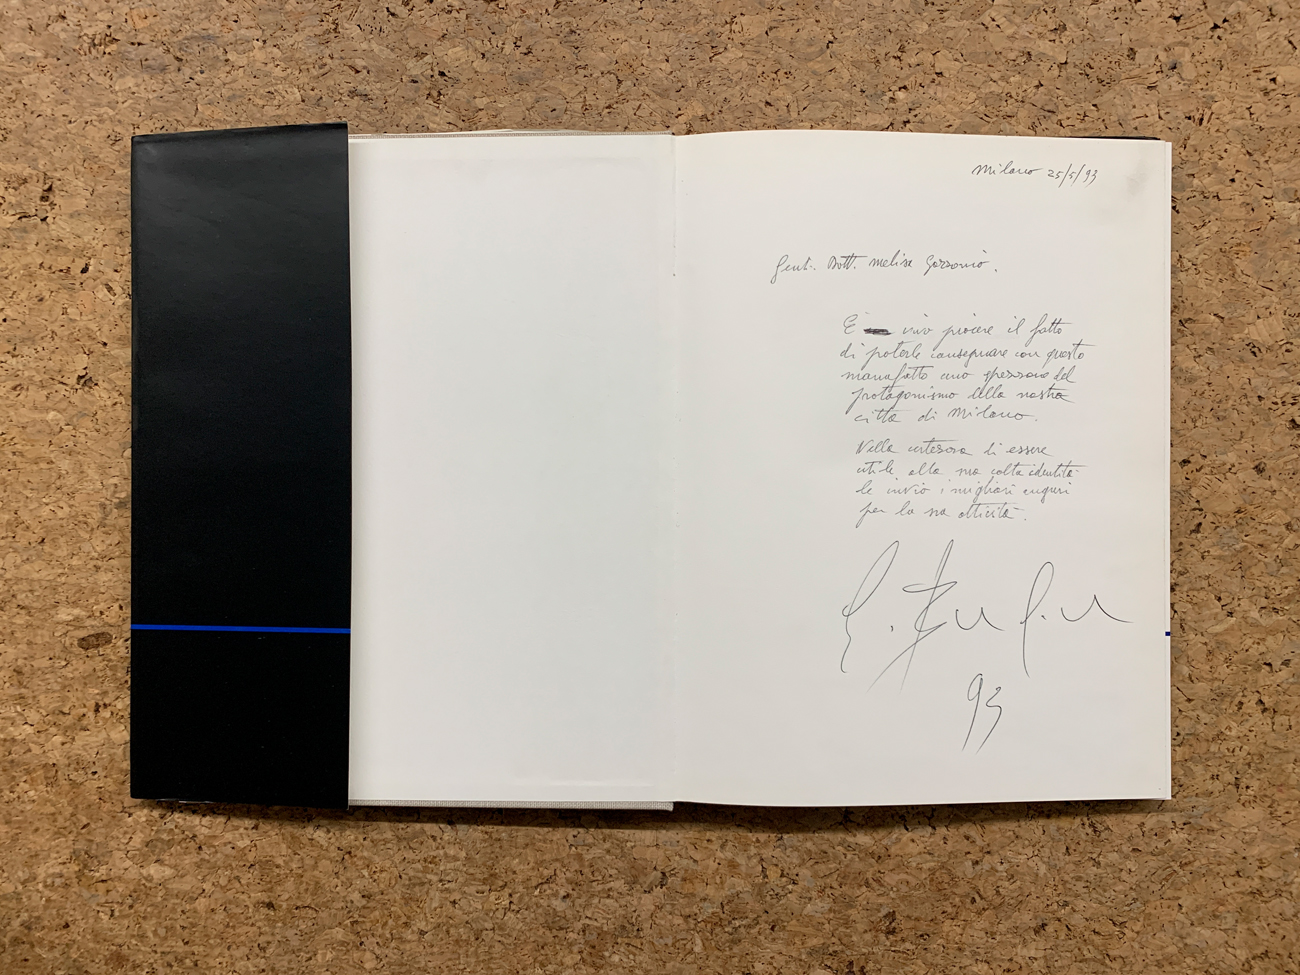 Milano 25/5/93
Gent. Dott. Melisa Garzonio.
E vivo piacere il fatto
di poterle consegnare con questo
manufatto uno spezzone del
protagonismo della nostra
città di Milano.
Nella certezza di essere
utile alla sua colta identità
le invio i migliori auguri
per la sua attività.
93